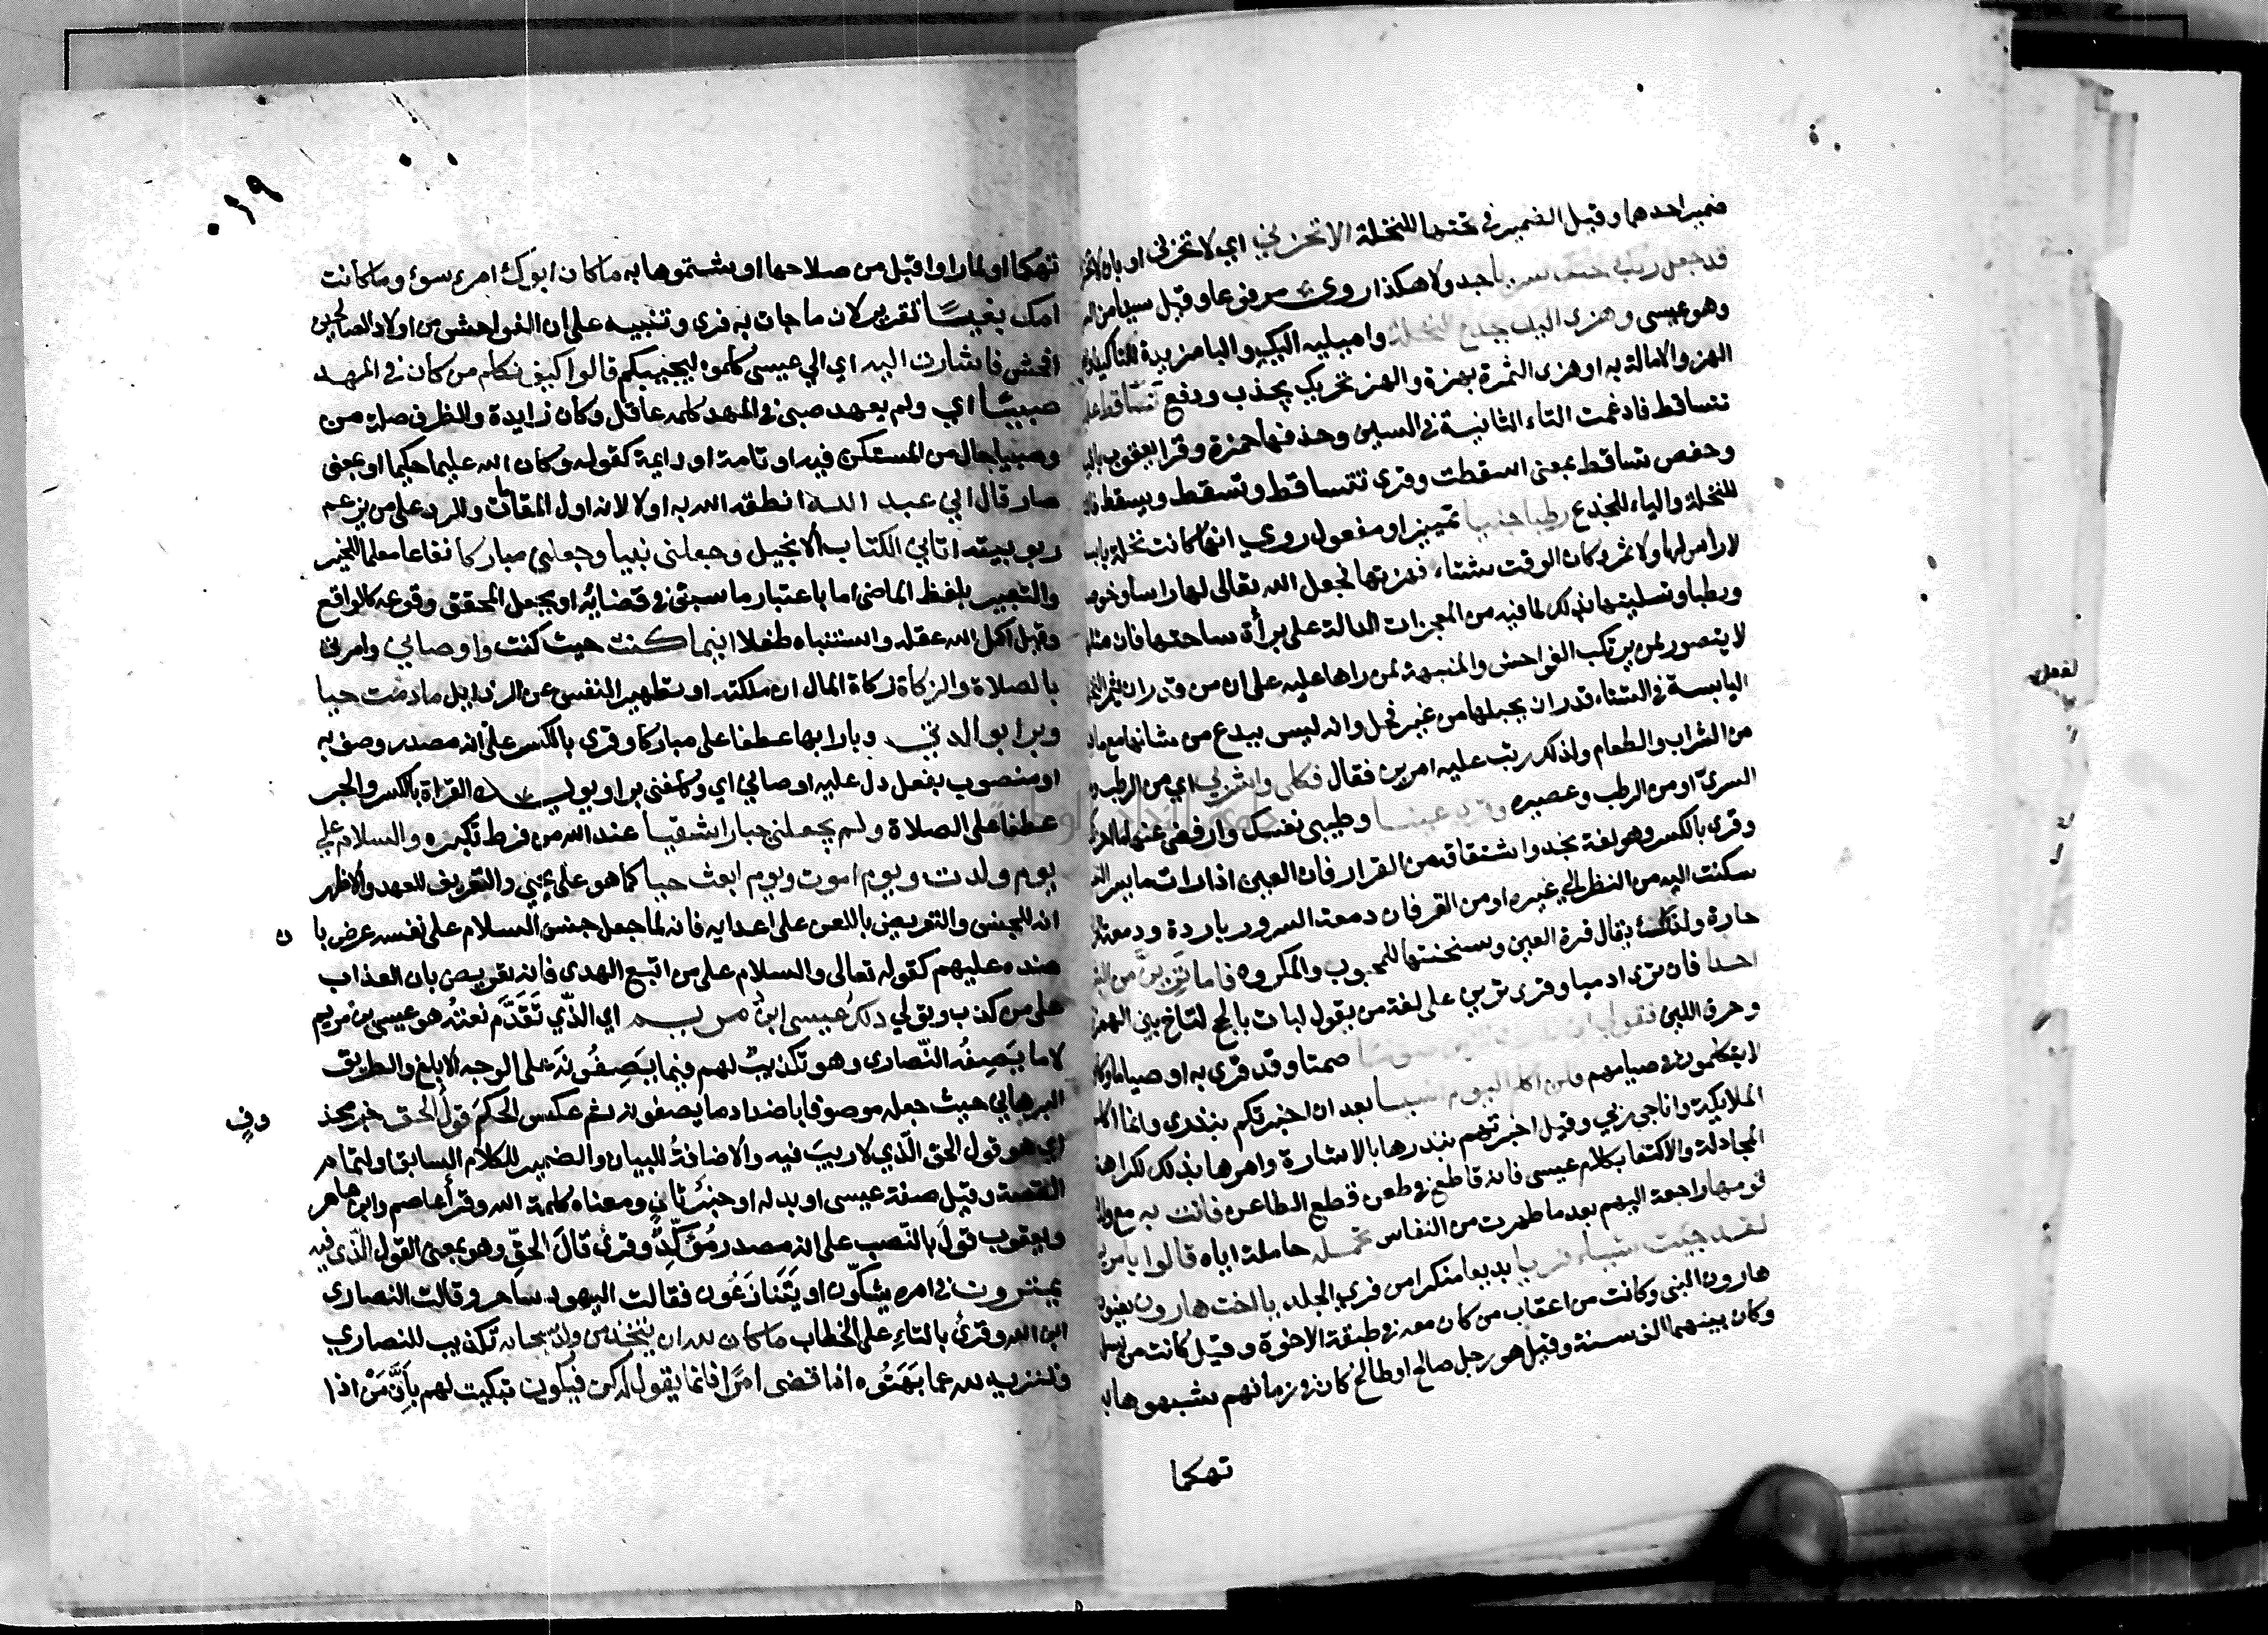 ضمير احدهما وقيل الضمير في تحتها للنخلة الا تحزني اي لا تحزني او بان لا تحزني
قد جعل ربك تحتك سريا جدولا هكذا روي مرفوعا وقيل سيدا من
وهو عيسى وهزي اليك بجذع النخلة واميليه اليك والبا مزيدة للتاكيد
الهز والامالة به او هزي الثمرة بهزة والهز تحريك بجذب ودفع تساقط عليك
تتساقط فادغمت التاء الثانية في السين وحذفها حمزة وقرا يعقوب بالياء
وحفص تساقط بمعنى اسقطت وقري تتساقط وتسقط ويسقط
للنخلة والياء للجذع رطبا جنيا تمييز او مفعول روي انها كانت نخلة يابسة
لا راس لها ولا ثمر وكان الوقت شتاء فهزتها فجعل الله تعالى لها راسا وخوصا
ورطبا وتسليتها بذلك لما فيه من المعجزات الدالة على براة ساحتها فان مثلها
لا يتصور لمن يرتكب الفواحش والمنبهة لمن راها عليه على ان من قدر ان يثمر النخلة
اليابسة في الشتاء قدر ان يحبلها من غير فحل وانه ليس ببدع من شانها مع ما
من الشراب والطعام ولذلك رتب عليه امرين فقال فكلي واشربي اي من الرطب
السري او من الرطب وعصيره وقري عينا وطيبي نفسك وارفضي عنها ما احزنك
وقري بالكسر وهو لغة نجد واشتقاقه من القرار فان العين اذا رات ما يسر النفس
سكنت اليه من النظر الى غيره او من القر فان دمعة السرور باردة ودمعة
حارة ولذلك يقال قرة العين وسخنتها للمحبوب والمكروه فاما ترين من البشر
احدا فان تري ادميا وقري ترين على لغة من يقول لبات بالحج لتاخ بين الهمزة
وحرف اللين فقولي اني نذرت للرحمن صوما صمتا وقد قري به او صياما وكانوا
لا يتكلمون في صيامهم فلن اكلم اليوم انسيا بعد ان اخبرتكم بنذري وانما اكلم
الملايكة واناجي ربي وقيل اخبرتهم بنذرها بالاشارة وامرها بذلك لكراهة
المجادلة والاكتفا بكلام عيسى فانه قاطع في طعن قطع الطاعن فاتت به مع ولدها
قومها راجعة اليهم بعد ما طهرت من النفاس تحمله حاملة اياه قالوا يا مريم
لقد جيت شياء فريا بديعا منكرا من فري الجلد يا اخت هارون يعنون
هارون النبي وكانت من اعقاب من كان معه في طبقة الاخوة وقيل كانت من نسل
وكان بينهما الف سنة وقيل هو رجل صالح او طالح كان في زمانهم شبهوها به
تهكما
لفعل
٠١٩
تهكما او لما راوا قبل من صلاحها او شتموها به ما كان ابوك امرء سوء وما كانت
امك بغيا تقرير لان ما جات به فري وتنبيه على ان الفواحش من اولاد الصالحين
افحش فاشارت اليه اي الي عيسى كلموه ليجيبكم قالوا كيف نكلم من كان في المهد
صبيا اي ولم يعهد صبي في المهد كلمه عاقل وكان زايدة والظرف صلة من
وصبيا حال من المستكن فيه او تامة او دايمة كقوله وكان الله عليما حكيما او بمعنى
صار قال اني عبد الله انطقه الله به اولا لانه اول المقامات وللرد على من يزعم
ربوبيته اتاني الكتاب الانجيل وجعلني نبيا وجعلني مباركا نفاعا معلما للخير
والتعبير بلفظ الماضي اما باعتبار ما سبق في قضايه او بجعل المحقق وقوعه كالواقع
وقيل اكمل الله عقله واستنباه طفلا اينما كنت حيث كنت واوصاني وامرني
بالصلاة والزكاة زكاة المال ان ملكته او تطهير النفس عن الرذايل ما دمت حيا
وبرا بوالدتي وبارا بها عطفا على مباركا وقري بالكسر على انه مصدر وصف به
او منصوب بفعل دل عليه اوصاني اي وكلفني برا ويويده القراة بالكسر والجر
عطفا على الصلاة ولم يجعلني جبارا شقيا عند الله من فرط تكبره والسلام علي
يوم ولدت ويوم اموت ويوم ابعث حيا كما هو على يحيي والتعريف للعهد والاظهر
انه للجنس والتعريض باللعن على اعدايه فانه لما جعل جنس السلام على نفسه عرض با
ن
ضده عليهم كقوله تعالى والسلام على من اتبع الهدى فانه تعريض بان العذاب
على من كذب وتولي ذلك عيسى ابن مريم اي الذي تقدم نعته هو عيسى بن مريم
لا ما يصفه النصارى وهو تكذيب لهم فيما يصفونه على الوجه الابلغ والطريق
البرهاني حيث جعله موصوفا باضداد ما يصفونه ثم عكس الحكم قول الحق خبر محذ
وف
اي هو قول الحق الذي لا ريب فيه والاضافة للبيان والضمير للكلام السابق او لتمام
القصة وقيل صفة عيسى او بدله او خبر ثان ومعناه كلمة الله وقرأ عاصم وابن عامر
ويعقوب قول بالنصب على انه مصدر مؤكد وقرئ قال الحق وهو بمعنى القول الذي فيه
يمترون في امره يشكون او يتنازعون فقالت اليهود ساحر وقالت النصارى
ابن الله وقرئ بالتاء على الخطاب ما كان لله ان يتخذ من ولد سبحانه تكذيب للنصاري
وتنزيه لله عما بهتوه اذا قضى امرا فانما يقول له كن فيكون تبكيت لهم بأن من اذا